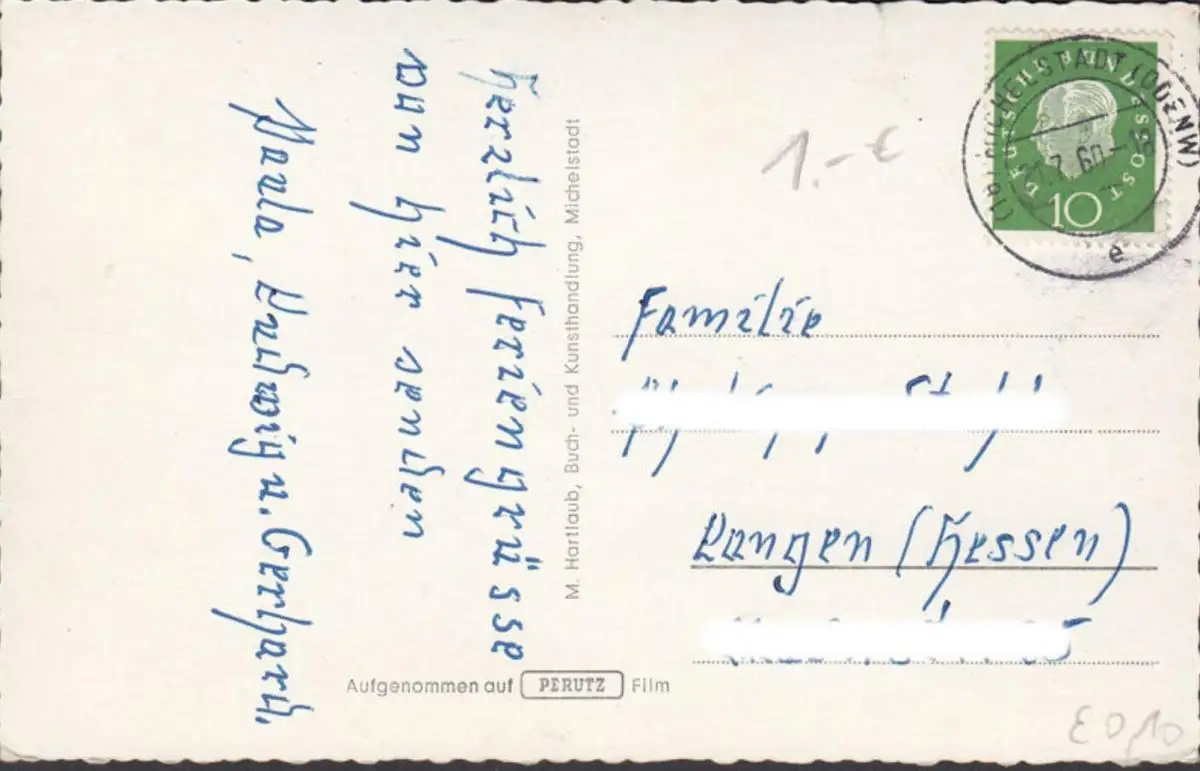 Herzlich Feriengrüsse
von hier senden
Paula, Hubwig u. Gerhard.
M. Hartlaub, Buch- und Kunsthandlung, Michelstadt
Aufgenommen auf PERUTZ Film
DEUTSCHE BUNDESPOST
10
(16) MICHELSTADT (ODENW)
7.60-18
e
1.- €
Familie
Langen (Hessen)
€ 0,10